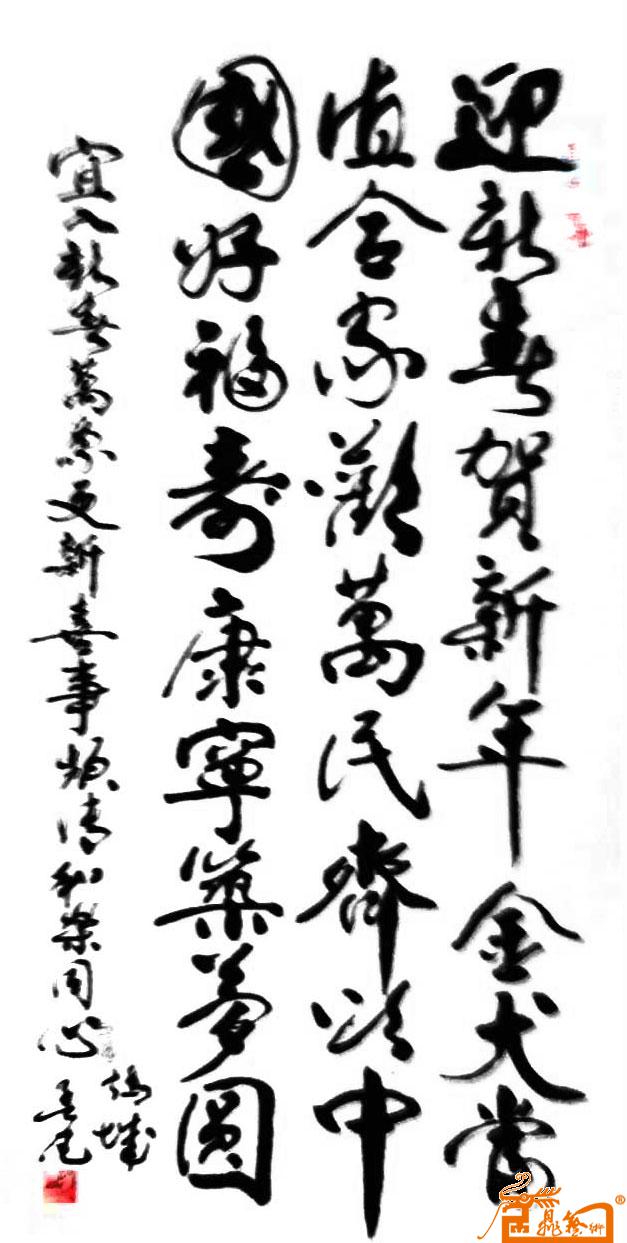 迎新春賀新年金犬當
值合家歡萬民齊頌中
國好福壽康寧築夢圓
宜入新春萬象更新喜事頻和樂同心
藝術